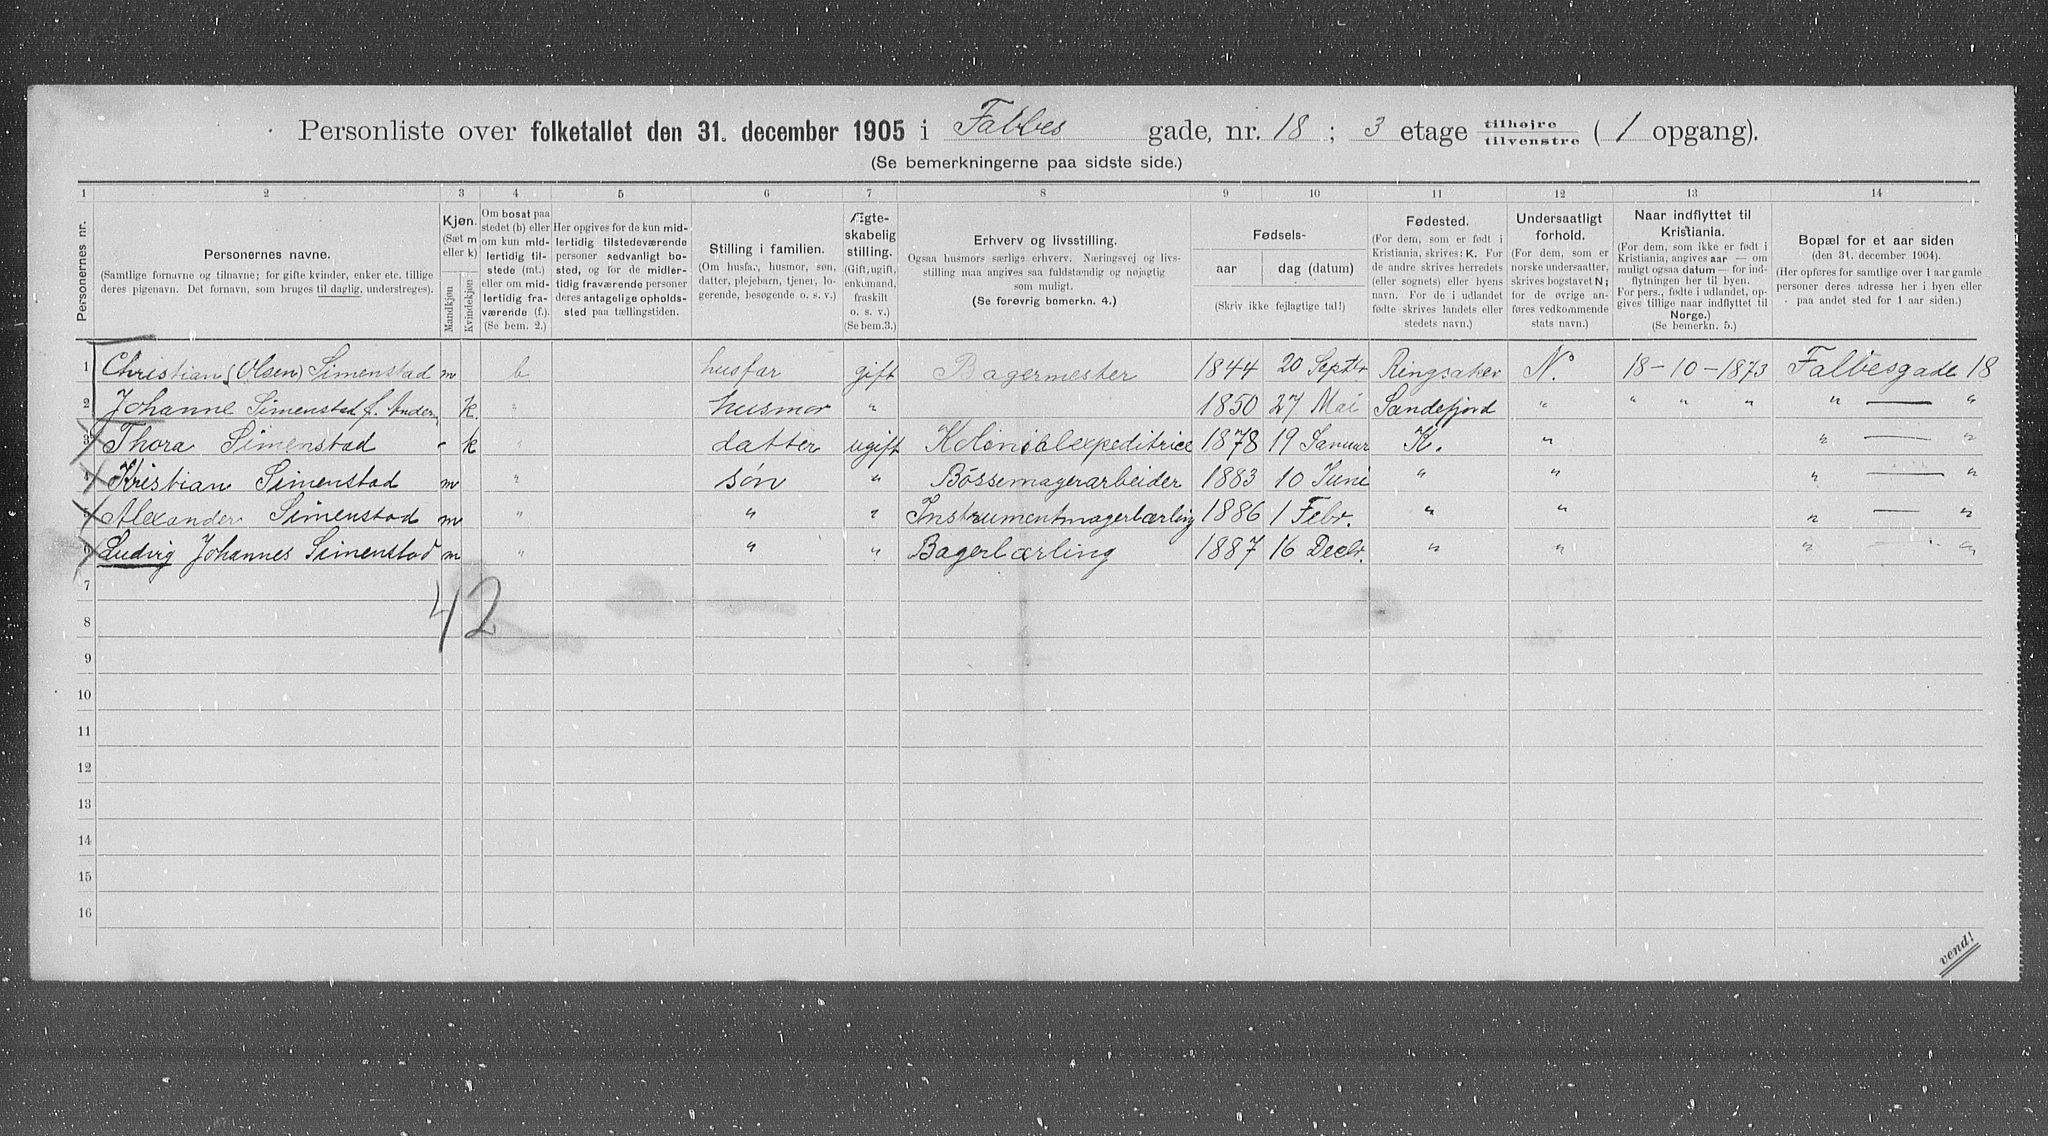 Personliste over folketallet den 31. december 1905 i Falbes gade, nr. 18 ; 3 etage tilhøjre tilvenstre ( 1 opgang).
(Se bemerkningerne paa sidste side.)
1 2 3 4 5 6 7 8 9 10 11 12 13 14
Personernes nr.
Personernes navne.
(Samtlige fornavne og tilnavne; for gifte kvinder, enker etc. tillige
deres pigenavn. Det fornavn, som bruges til daglig, understreges).
Kjøn.
(Sæt m
eller k)
Mandkjøn
Kvindekjøn
Om bosat paa
stedet (b) eller
om kun mid-
lertidig til-
stede (mt.)
eller om mid-
lertidig fra-
værende (f.).
(Se bem. 2.)
Her opgives for de kun mid-
lertidig tilstedeværende
personer sedvanligt bo-
sted, og for de midler-
tidig fraværende personer
deres antagelige opholds-
sted paa tællingstiden.
Stilling i familien.
(Om husfar, husmor, søn,
datter, plejebarn, tjener, lo-
gerende, besøgende o. s. v.)
Ægte-
skabelig
stilling.
(Gift, ugift,
enkemand,
fraskilt
o. s. v.)
(Se bem.3.)
Erhverv og livsstilling.
Ogsaa husmors særlige erhverv. Næringsvej og livs-
stilling maa angives saa fuldstændig og nøjagtig
som muligt.
(Se forøvrig bemerkn. 4.)
Fødsels-
aar
dag (datum)
(Skriv ikke fejlagtige tal!)
Fødested.
(For dem, som er født i
Kristiania, skrives: K. For
de andre skrives herredets
(eller sognets) eller byens
navn. For de i udlandet
fødte skrives landets eller
stedets navn.)
Undersaatligt
forhold.
(For dem, som er
norske undersaatter,
skrives bogstavet N;
for de øvrige an-
føres vedkommende
stats navn.)
Naar indflyttet til
Kristiania.
(For dem, som ikke er født i
Kristiania, angives aar — om
muligt ogsaa datum — for ind-
flytningen her til byen.
For pers. fødte i udlandet, op-
gives tillige naar indflyttet til
Norge.)
(Se bemerkn. 5.)
Bopæl for et aar siden
(den 31. december 1904).
(Her opføres for samtlige over 1 aar gamle
personer deres adresse her i byen eller
paa andet sted for 1 aar siden.)
1 Christian (Olsen) Simenstad m b husfar gift Bagermester 1844 20 Septbr Ringsaker N. 18-10-1873 Falbesgade 18
2 Johanne Simenstad f. Ander k. " husmor " 1850 27 Mai Sandefjord " " " " " — "
3 Thora Simenstad " k " datter ugift Kolonialexpeditrice 1878 19 Januar K. " " — "
4 Kristian Simenstad m " søn " Bössemagerarbeider 1883 10 Juni " " " — "
5 Alexander Simenstad m " " " Instrumentmagerlærling 1886 1 Febr. " " " — "
6 Ludvig Johannes Simenstad m " " " Bagerlærling 1887 16 Decbr. " " " — "
42
7
8
9
10
11
12
13
14
15
16
vend!